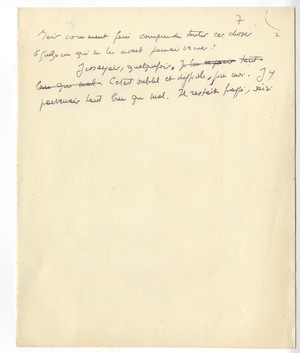 7
Mais comment faire comprendre toutes ces choses
à quelqu'un qui ne les avait jamais vécues ?
J'essayais, quelquefois. Je
bien que mal. C'était et difficile, pour moi. J'y
parvenais tant bien que mal. Il restait